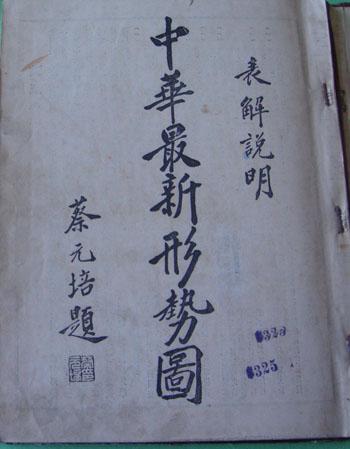 表解說明
中華最新形勢圖
蔡元培題
325